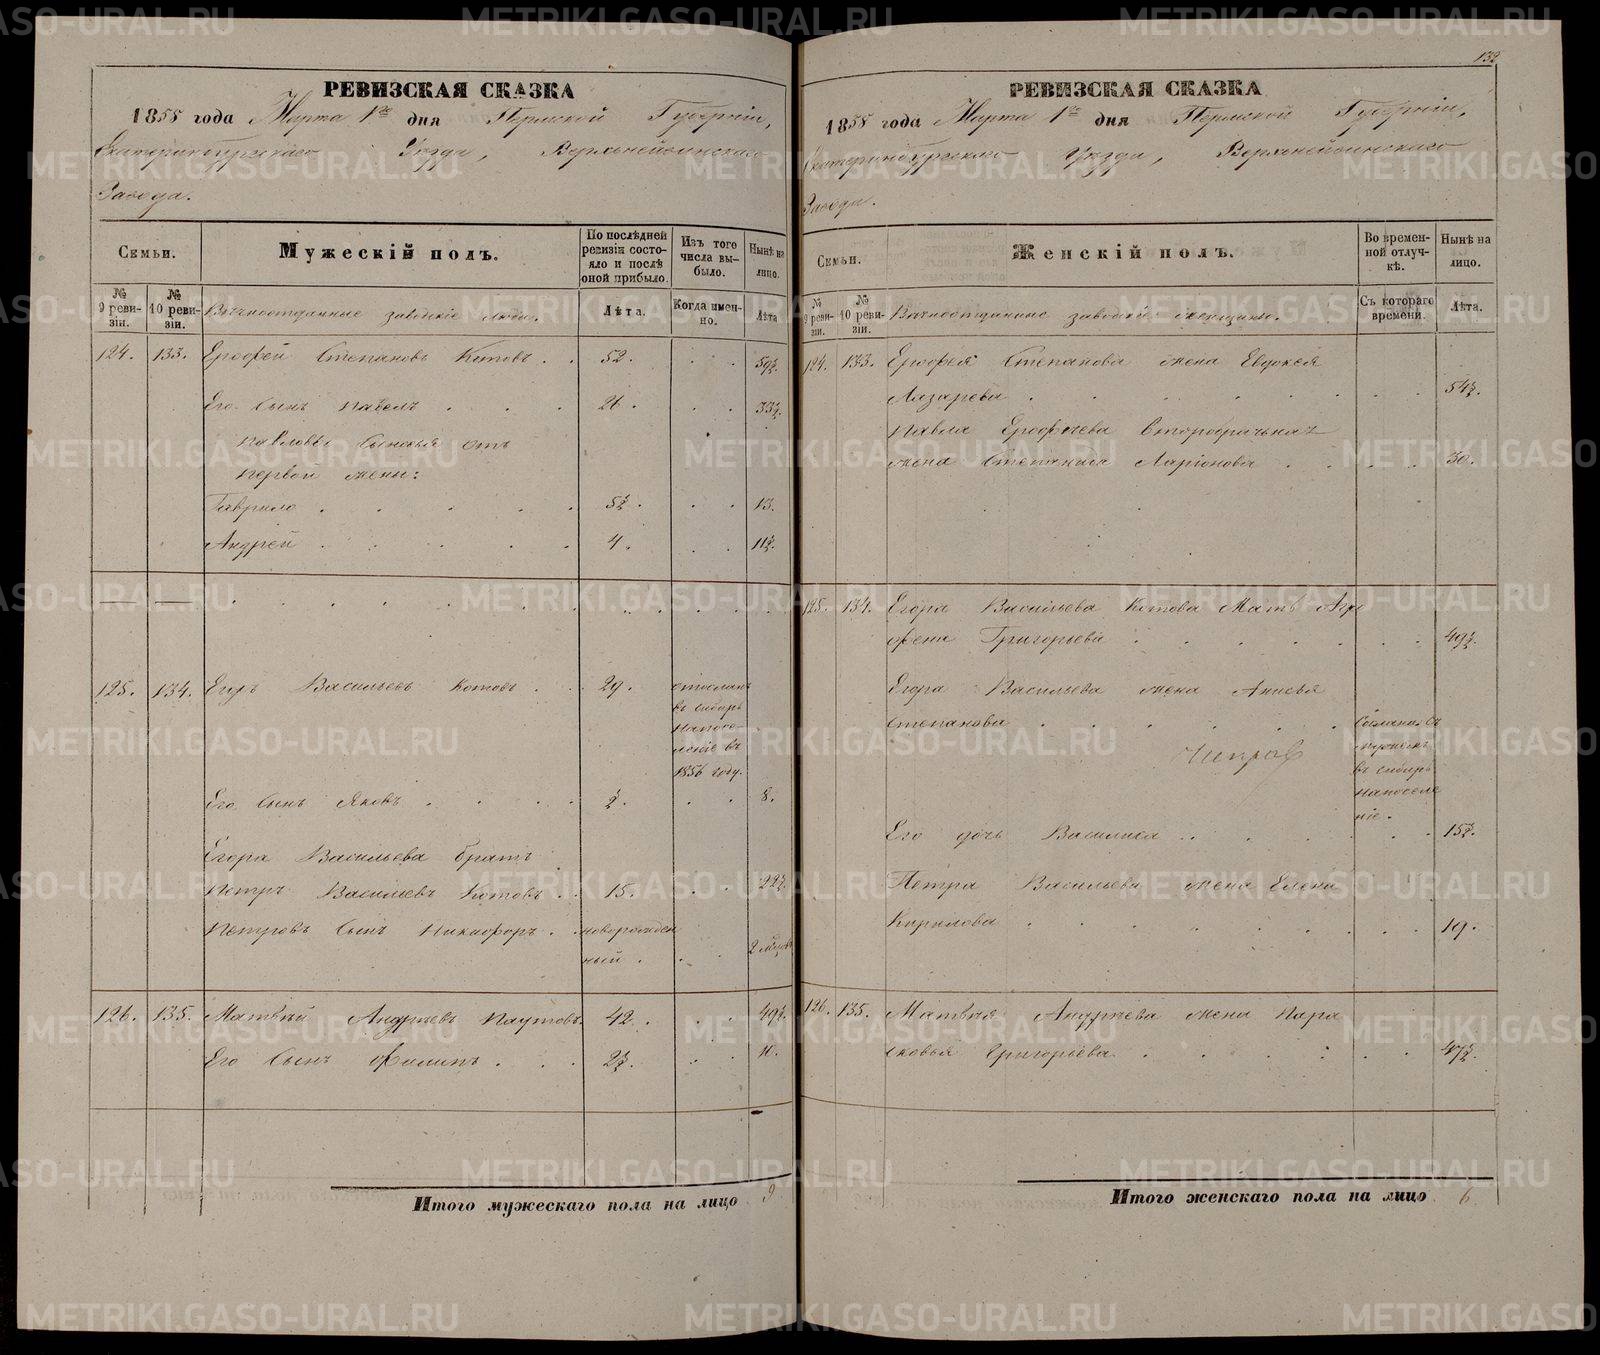 РЕВИЗСКАЯ СКАЗКА
1858 года Марта 1го дня Пермской Губерніи,
Екатеринбургскаго Уѣзда, Верхнейвинскаго
Завода.
Семьи.
Мужескій полъ.
По послѣдней ревизіи состояло и послѣ оной прибыло.
Изъ того числа выбыло.
Нынѣ на лицо.
№ 9 ревизіи.
№ 10 ревизіи.
Вѣчноотданные заводскіе люди.
Лѣта.
Когда именно.
Лѣта
124. 133. Ерофей Степановъ Котовъ . . 52. . . 59½.
Его Сынъ Павелъ . . . 26. . . 33½.
Павловы Сыновья отъ
первой жены:
Гаврило . . . . . 5½. . . 13.
Андрей . . . . . 4. . . 11½.
125. 134. Егоръ Васильевъ Котовъ . . 29.
отосланъ
въ сибирь
на посе-
леніе въ
1856 году.
Его Сынъ Яковъ . . . . ½. . . 8.
Егора Васильева братъ
Петръ Васильевъ Котовъ . . 15. . . 22½.
Петровъ Сынъ Никифоръ . . новорожден
ный . . . 2 мѣсяц
126. 135. Матвѣй Андреевъ Паутовъ. 42. . . 49½.
Его Сынъ Филипъ . . . 2½. . . 10.
Итого мужескаго пола на лицо 9
132
РЕВИЗСКАЯ СКАЗКА
1858 года Марта 1го дня Пермской Губерніи,
Екатеринбургскаго Уѣзда, Верхнейвинскаго
Завода.
Семьи.
Женскій полъ.
Во временной отлучкѣ.
Нынѣ на лицо.
№ 9 ревизіи.
№ 10 ревизіи.
Вѣчноотданные заводскія женщины.
Съ котораго времени.
Лѣта.
124. 133. Ерофея Степанова жена Евдокея
Лазарева . . . . . . 54½.
Павла Ерофеева Второбрачная
жена Степанида Ларіонова . . . . 30.
125. 134. Егора Васильева Котова Мать Агра
фена Григорьева . . . . . . 49½.
Егора Васильева жена Анисья
Степанова . . . . . .
Сослана съ
мужемъ
въ сибирь
на поселе
ніе.
Его дочь Василиса . . . . . 15½.
Петра Васильева жена Елена
Кирилова . . . . . . 19.
126. 135. Матвѣя Андреева жена Пара
сковья Григорьева . . . . . 47½.
Итого женскаго пола на лицо 6
METRIKI.GASO-URAL.RU